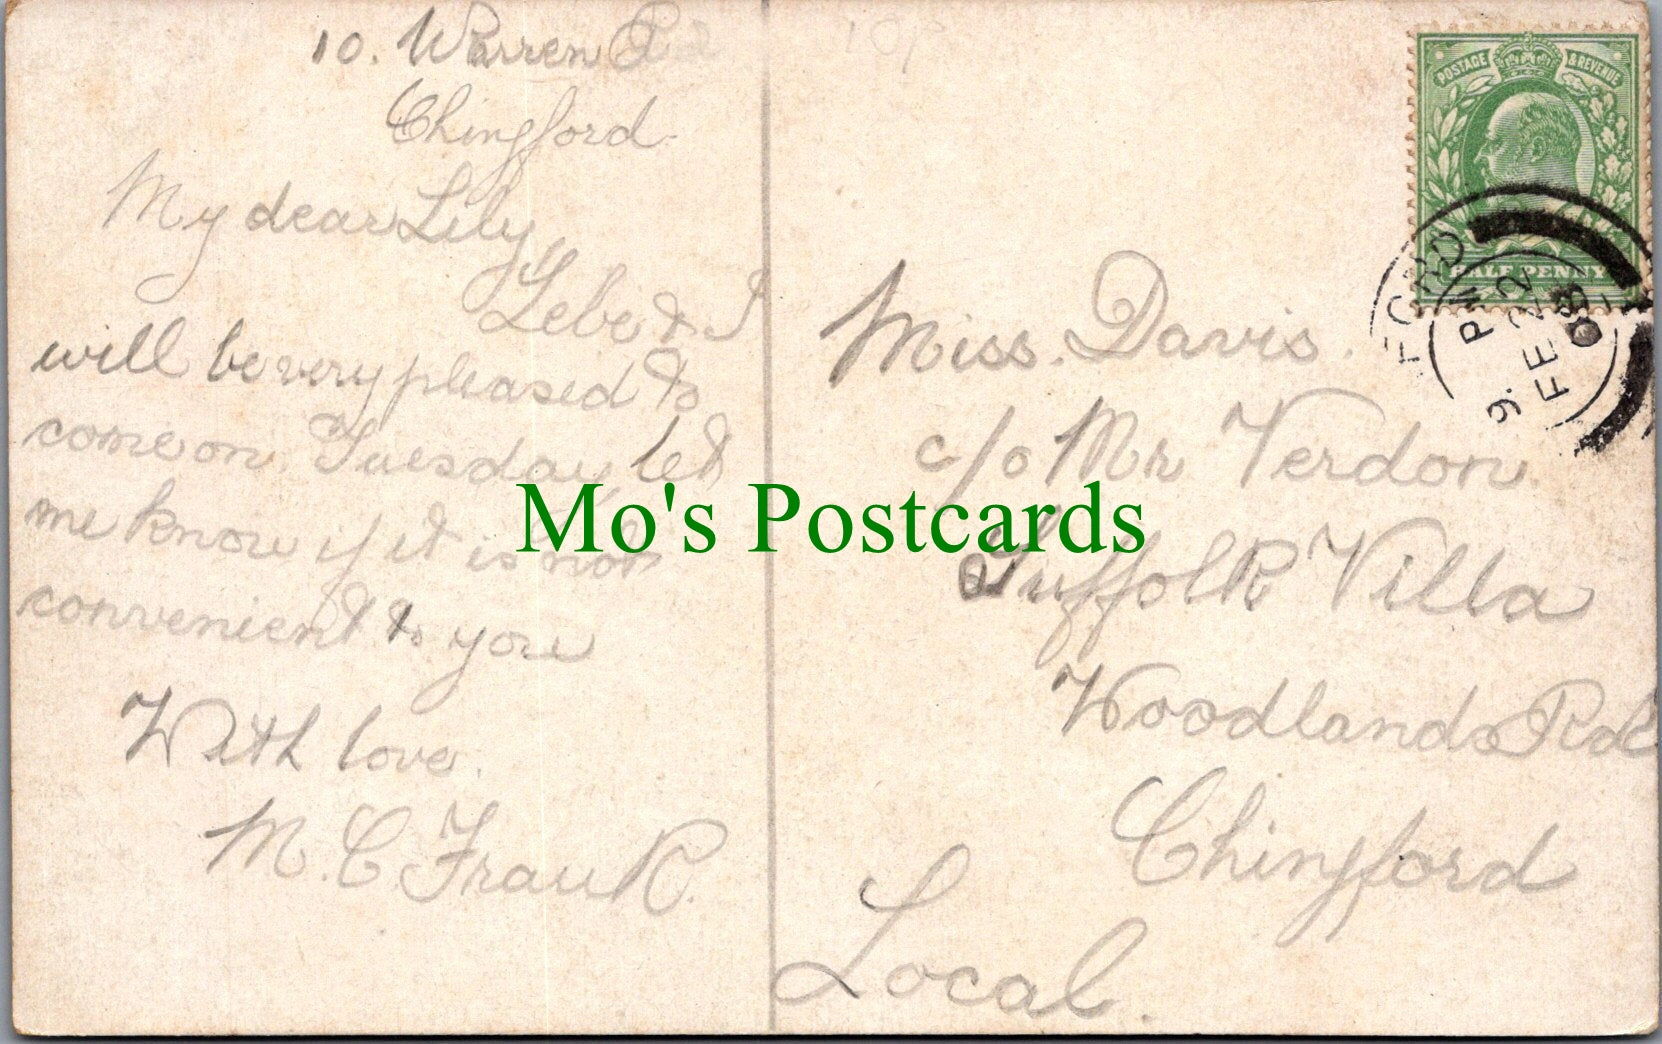 10. Warren Rd
Chingford
My dear Lily,
& I
will be very pleased to
come on Tuesday, let
me know if it is not
convenient to you
With love.
M. C. Frank.
10P
POSTAGE & REVENUE
HALF PENNY
FORD
9. PM
FE 22
08
Miss. Davis.
c/o Mr Verdon.
Suffolk Villa
Woodlands Rd
Chingford
Local.
Mo's Postcards